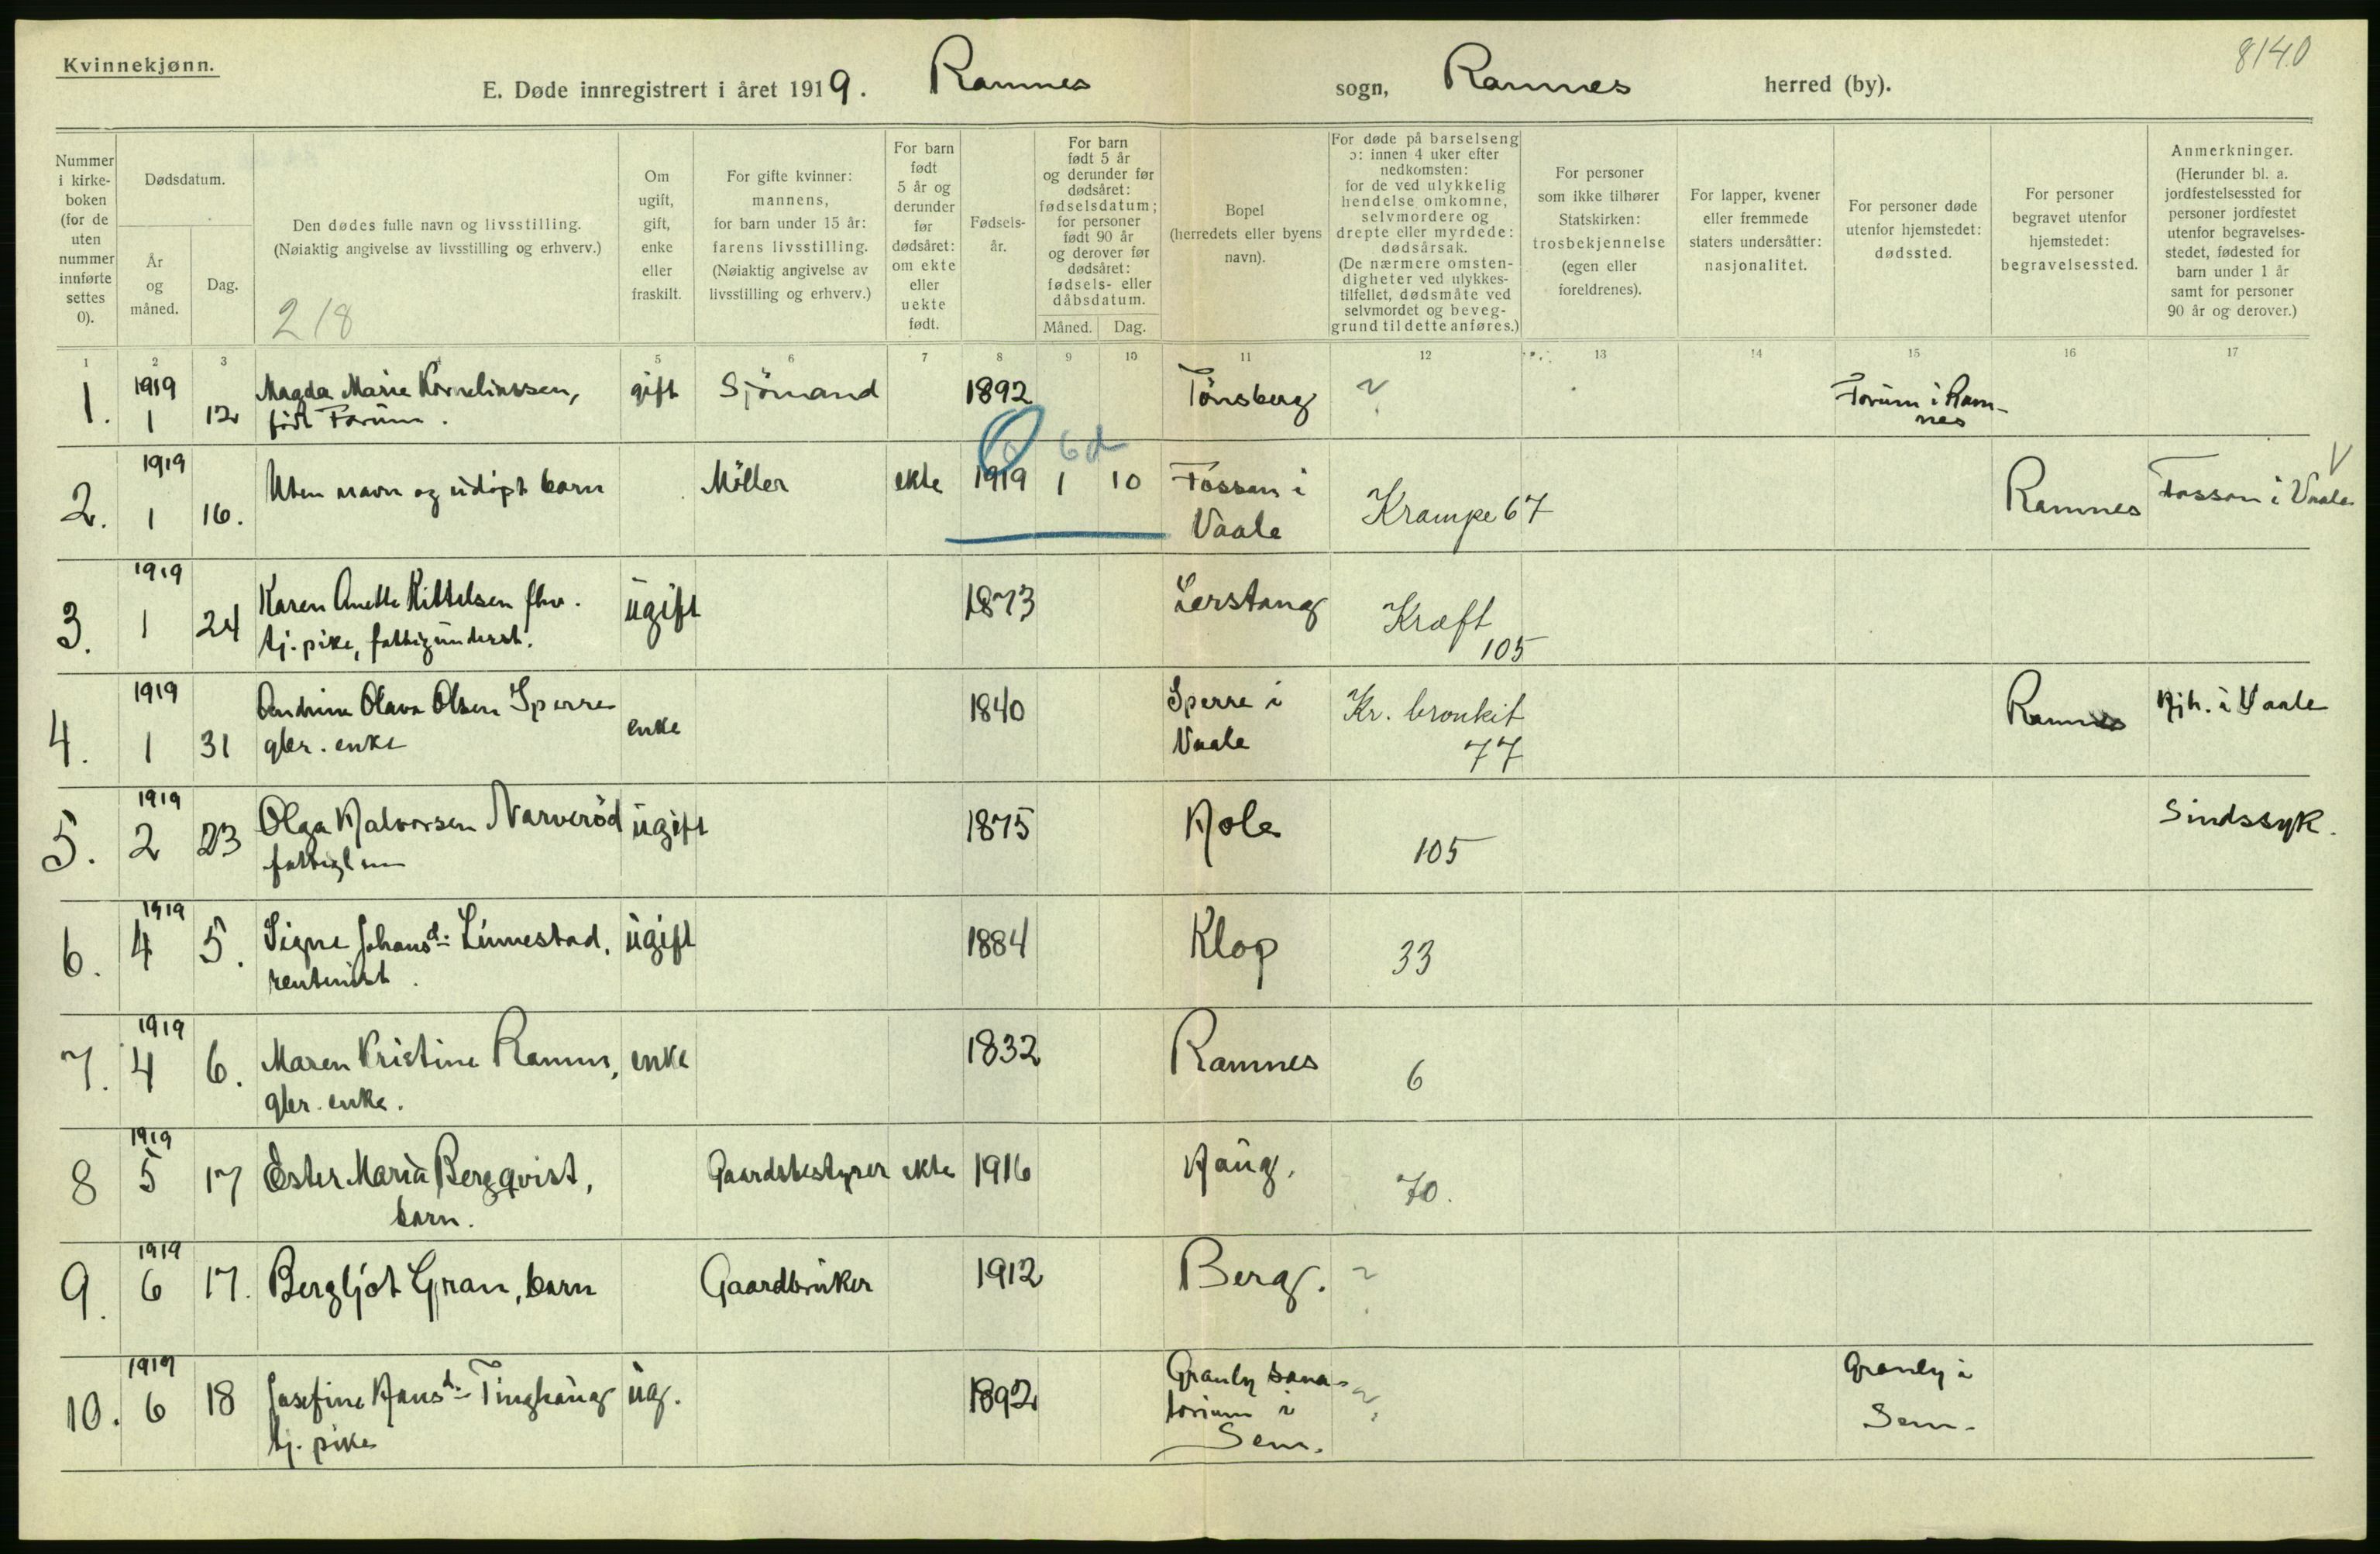 Kvinnekjønn.
8140
E. Døde innregistrert i året 1919. Ramnes sogn, Ramnes herred (by).
Nummer i kirke-boken (for de uten nummer innførte settes 0).
Dødsdatum.
År og måned.
Dag.
Den dødes fulle navn og livsstilling.
(Nøiaktig angivelse av livsstilling og erhverv.)
218
Om ugift, gift, enke eller fraskilt.
For gifte kvinner: mannens, for barn under 15 år: farens livsstilling. (Nøiaktig angivelse av livsstilling og erhverv.)
For barn født 5 år og derunder før dødsåret: om ekte eller uekte født.
Fødsels-år.
For barn født 5 år og derunder før dødsåret: fødselsdatum; for personer født 90 år og derover før dødsåret: fødsels- eller dåbsdatum.
Måned. Dag.
Bopel (herredets eller byens navn).
For døde på barselseng ɔ: innen 4 uker efter nedkomsten: for de ved ulykkelig hendelse omkomne, selvmordere og drepte eller myrdede: dødsårsak. (De nærmere omsten-digheter ved ulykkes-tilfellet, dødsmåte ved selvmordet og beveg-grund til dette anføres.)
For personer som ikke tilhører Statskirken: trosbekjennelse (egen eller foreldrenes).
For lapper, kvener eller fremmede staters undersåtter: nasjonalitet.
For personer døde utenfor hjemstedet: dødssted.
For personer begravet utenfor hjemstedet: begravelsessted.
Anmerkninger. (Herunder bl. a. jordfestelsessted for personer jordfestet utenfor begravelses-stedet, fødested for barn under 1 år samt for personer 90 år og derover.)
1 2 3 4 5 6 7 8 9 10 11 12 13 14 15 16 17
1. 1919 1 12 Magda Marie Korneliussen, gift Sjömand 1892 Tönsberg ? Forum i Ram-
født Forum. nes
2. 1919 1 16. Uten navn og udöpt barn Möller ekte 1919 1 10 Fossan i Krampe 67 Ramnes Fossan i Vaale V
6 d
Vaale
3. 1919 1 24 Karen Anette Kittelsen fhv. ugift 1873 Lerstang Kræft
tj. pike, fattigunderst. 105
4. 1919 1 31 Andrine Olava Olsen Sperre enke 1840 Sperre i Kr. bronkit Ramnes Hjh. i Vaale
gbr. enke Vaale 77
5. 1919 2 23 Olga Halvorsen Narveröd ugift 1875 Hole 105 Sindssyk.
fattiglem
6. 1919 4 5. Signe Johansd: Linnestad, ugift 1884 Klop 33
rentenist.
7. 1919 4 6. Maren Kristine Ramnes, enke 1832 Ramnes 6
gbr. enke.
8 1919 5 17 Ester Maria Bergqvist, Gaardsbestyrer ekte 1916 Haug. 70.
barn.
9. 1919 6 17. Bergljot Gran, barn Gaardbruker 1912 Berg. ?
10. 1919 6 18 Josefine Hansd: Tinghaug ug. 1892 Granly sana- ? Granly i
tj. pike torium i Sem.
Sem.